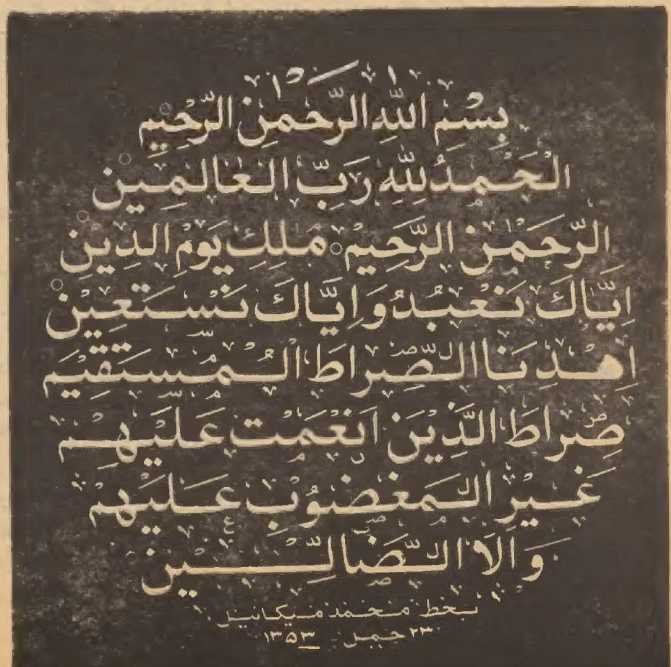 بِسْمِ اللّٰهِ الرَّحْمٰنِ الرَّحِيْمِ
اَلْحَمْدُ لِلّٰهِ رَبِّ الْعَالَمِيْنَ
الرَّحْمٰنِ الرَّحِيْمِ مٰلِكِ يَوْمِ الدِّيْنِ
اِيَّاكَ نَعْبُدُ وَاِيَّاكَ نَسْتَعِيْنُ
اِهْدِنَا الصِّرَاطَ الْمُسْتَقِيْمَ
صِرَاطَ الَّذِيْنَ اَنْعَمْتَ عَلَيْهِمْ
غَيْرِ الْمَغْضُوْبِ عَلَيْهِمْ
وَلَا الضَّالِّيْنَ
بخط محمد میکائیل
۲۳ ۱۳۵۳